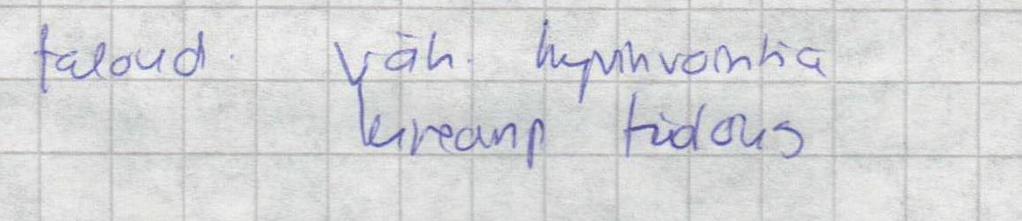 taloud. väh. hyvinvointia
kireamp talous